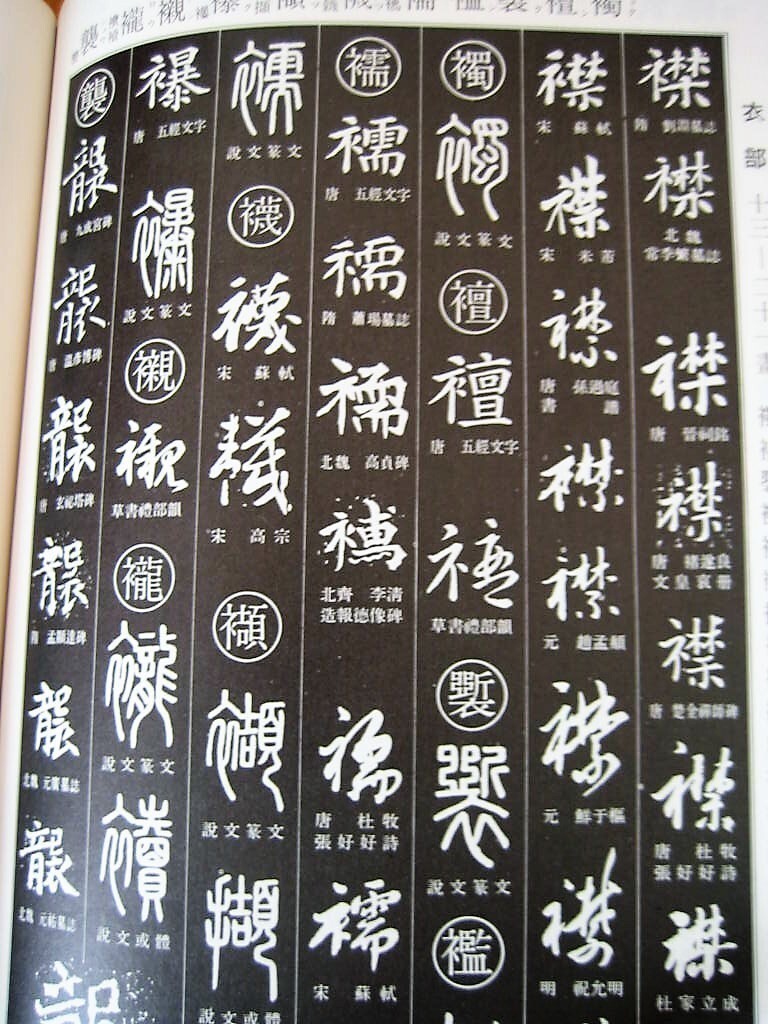 衣部 十三—二十一畫
襟 隋 劉淵墓誌
襟 北魏 常季繁墓誌
襟 唐 晉祠銘
襟 唐 褚遂良 文皇哀册
襟 唐 楚金禪師碑
襟 唐 杜牧 張好好詩
襟 杜家立成
襟 宋 蘇軾
襟 宋 米芾
襟 唐 孫過庭 書譜
襟
襟 元 趙孟頫
襟 元 鮮于樞
襟 明 祝允明
襡
襡 說文篆文
襢
襢 唐 五經文字
襢 草書禮部韻
說文篆文
襤
襦
襦 唐 五經文字
襦 隋 蕭瑒墓誌
襦 北魏 高貞碑
襦 北齊 李清 造報德像碑
襦 唐 杜牧 張好好詩
襦 宋 蘇軾
說文篆文
襪
襪 宋 蘇軾
宋 高宗
襭
襭 說文篆文
擷 說文或體
襮 唐 五經文字
襮 說文篆文
襯
襯 草書禮部韻
襱
襱 說文篆文
襩 說文或體
襲
襲 唐 九成宮碑
襲 唐 溫彥博碑
襲 唐 玄祕塔碑
襲 隋 孟顯達碑
襲 北魏 元廣墓誌
襲 北魏 元祐墓誌